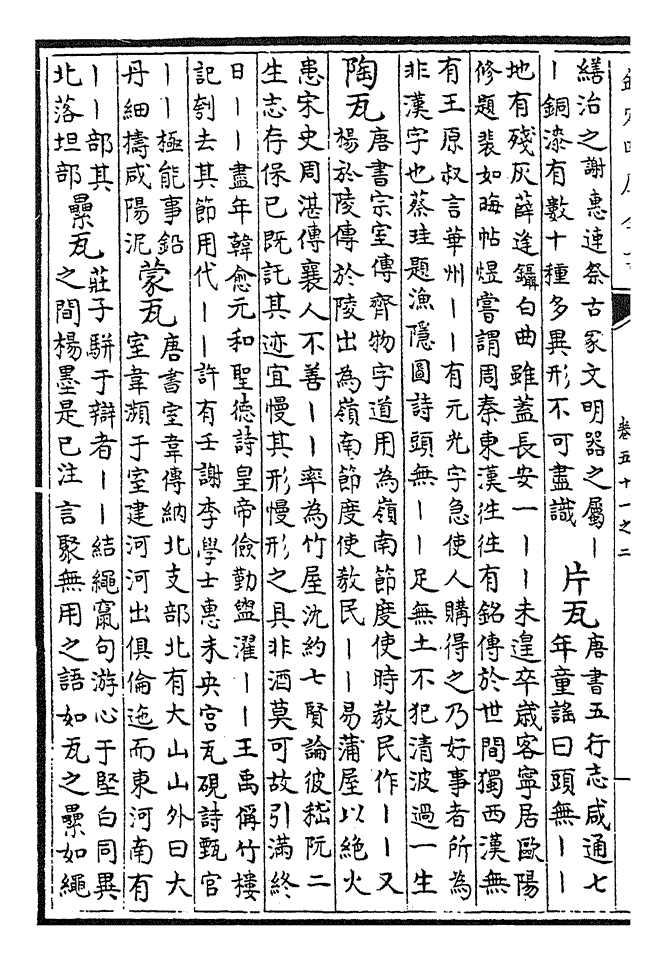 卷五十一之二
繕治之謝惠連祭古冢文明器之屬丨
丨銅漆有數十種多異形不可盡識
片瓦
唐書五行志咸通七
年童謠曰頭無丨丨
地有殘灰薛逢鑷白曲雖蓋長安一丨丨未遑卒歲客寧居歐陽
修題裴如晦帖煜嘗謂周秦東漢往往有銘傳於世間獨西漢無
有王原叔言華州丨丨有元光字急使人購得之乃好事者所為
非漢字也蔡珪題漁隱圖詩頭無丨丨足無土不犯清波過一生
陶瓦
唐書宗室傳齊物字道用為嶺南節度使時教民作丨丨又
楊於陵傳於陵出為嶺南節度使教民丨丨易蒲屋以絕火
患宋史周湛傳襄人不善丨丨率為竹屋沈約七賢論彼嵇阮二
生志存保已既託其迹宜慢其形慢形之具非酒莫可故引滿終
日丨丨盡年韓愈元和聖德詩皇帝儉勤盥濯丨丨王禹偁竹樓
記刳去其節用代丨丨許有壬謝李學士惠未央宫瓦硯詩甄官
丨丨極能事鉛
丹細擣咸陽泥
蒙瓦
唐書室韋傳納北支部北有大山山外曰大
室韋瀕于室建河河出俱倫迤而東河南有
丨丨部其
北落坦部
纍瓦
莊子駢于辯者丨丨結繩竄句游心于堅白同異
之間楊墨是已注言聚無用之語如瓦之纍如繩